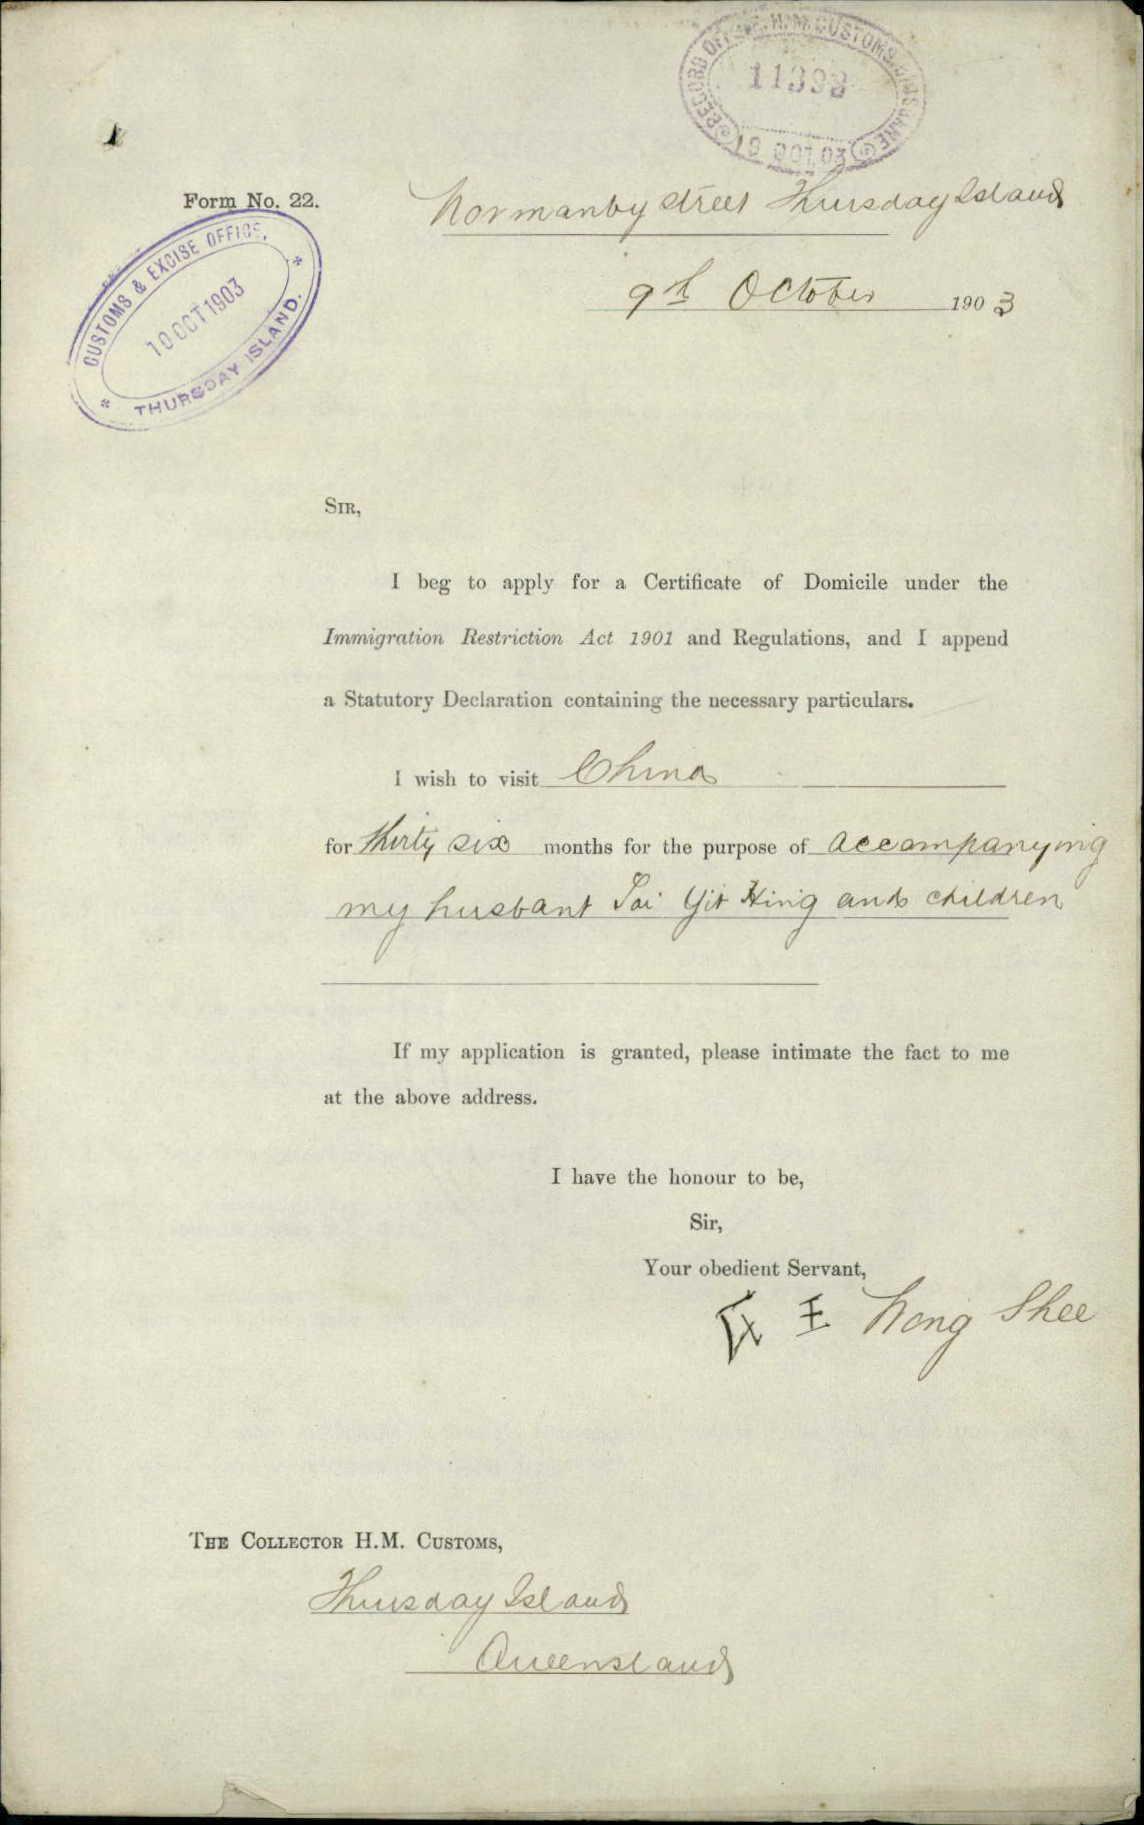 RECORD OFFICE. H.M. CUSTOMS. BRISBANE
11393
19 OCT. 03
Form No. 22.
Normanby Street Thursday Island
CUSTOMS & EXCISE OFFICE,
10 OCT 1903
THURSDAY ISLAND.
9th October 1903
SIR,
I beg to apply for a Certificate of Domicile under the
Immigration Restriction Act 1901 and Regulations, and I append
a Statutory Declaration containing the necessary particulars.
I wish to visit China
for thirty six months for the purpose of accompanying
my husbant Tai Yit Hing and children
If my application is granted, please intimate the fact to me
at the above address.
I have the honour to be,
Sir,
Your obedient Servant,
氏 王 Wong Shee
THE COLLECTOR H.M. CUSTOMS,
Thursday Island
Queensland